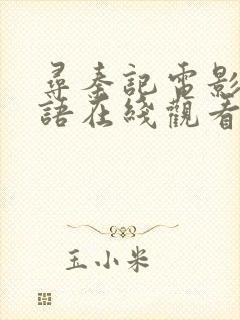 尋秦記電影
語在綫觀看
玉小米